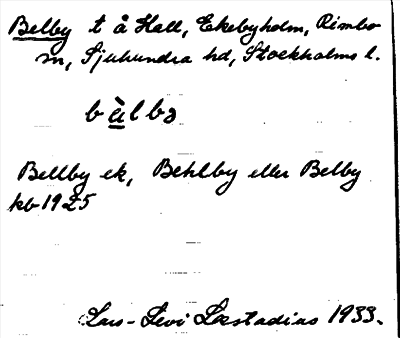 Belby t å Hall, Ekebyholm, Rimbo
sn, Sjuhundra hd, Stockholms l.
Bellby ek, Behlby eller Belby
kb 1925
Lars-Levi Læstadius 1933.